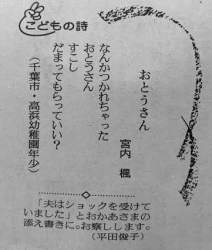 こどもの詩
おとうさん
宮内 楓
なんかつかれちゃった
おとうさん
すこし
だまってもらっていい？
（千葉市・高浜幼稚園年少）
「夫はショックを受けて
いました」とおかあさまの
添え書きに。お察しします。
（平田俊子）